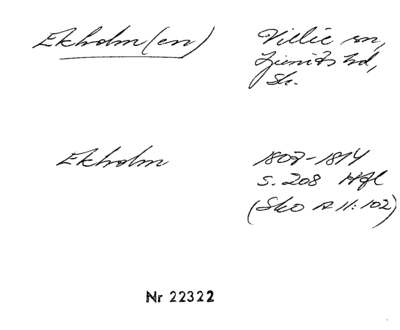 Ekholm(en)
Villie sn,
Ljunits hd,
Sk.
Ekholm
1807-1814
s. 208 Hfl
(Sko A II:102)
Nr 22322